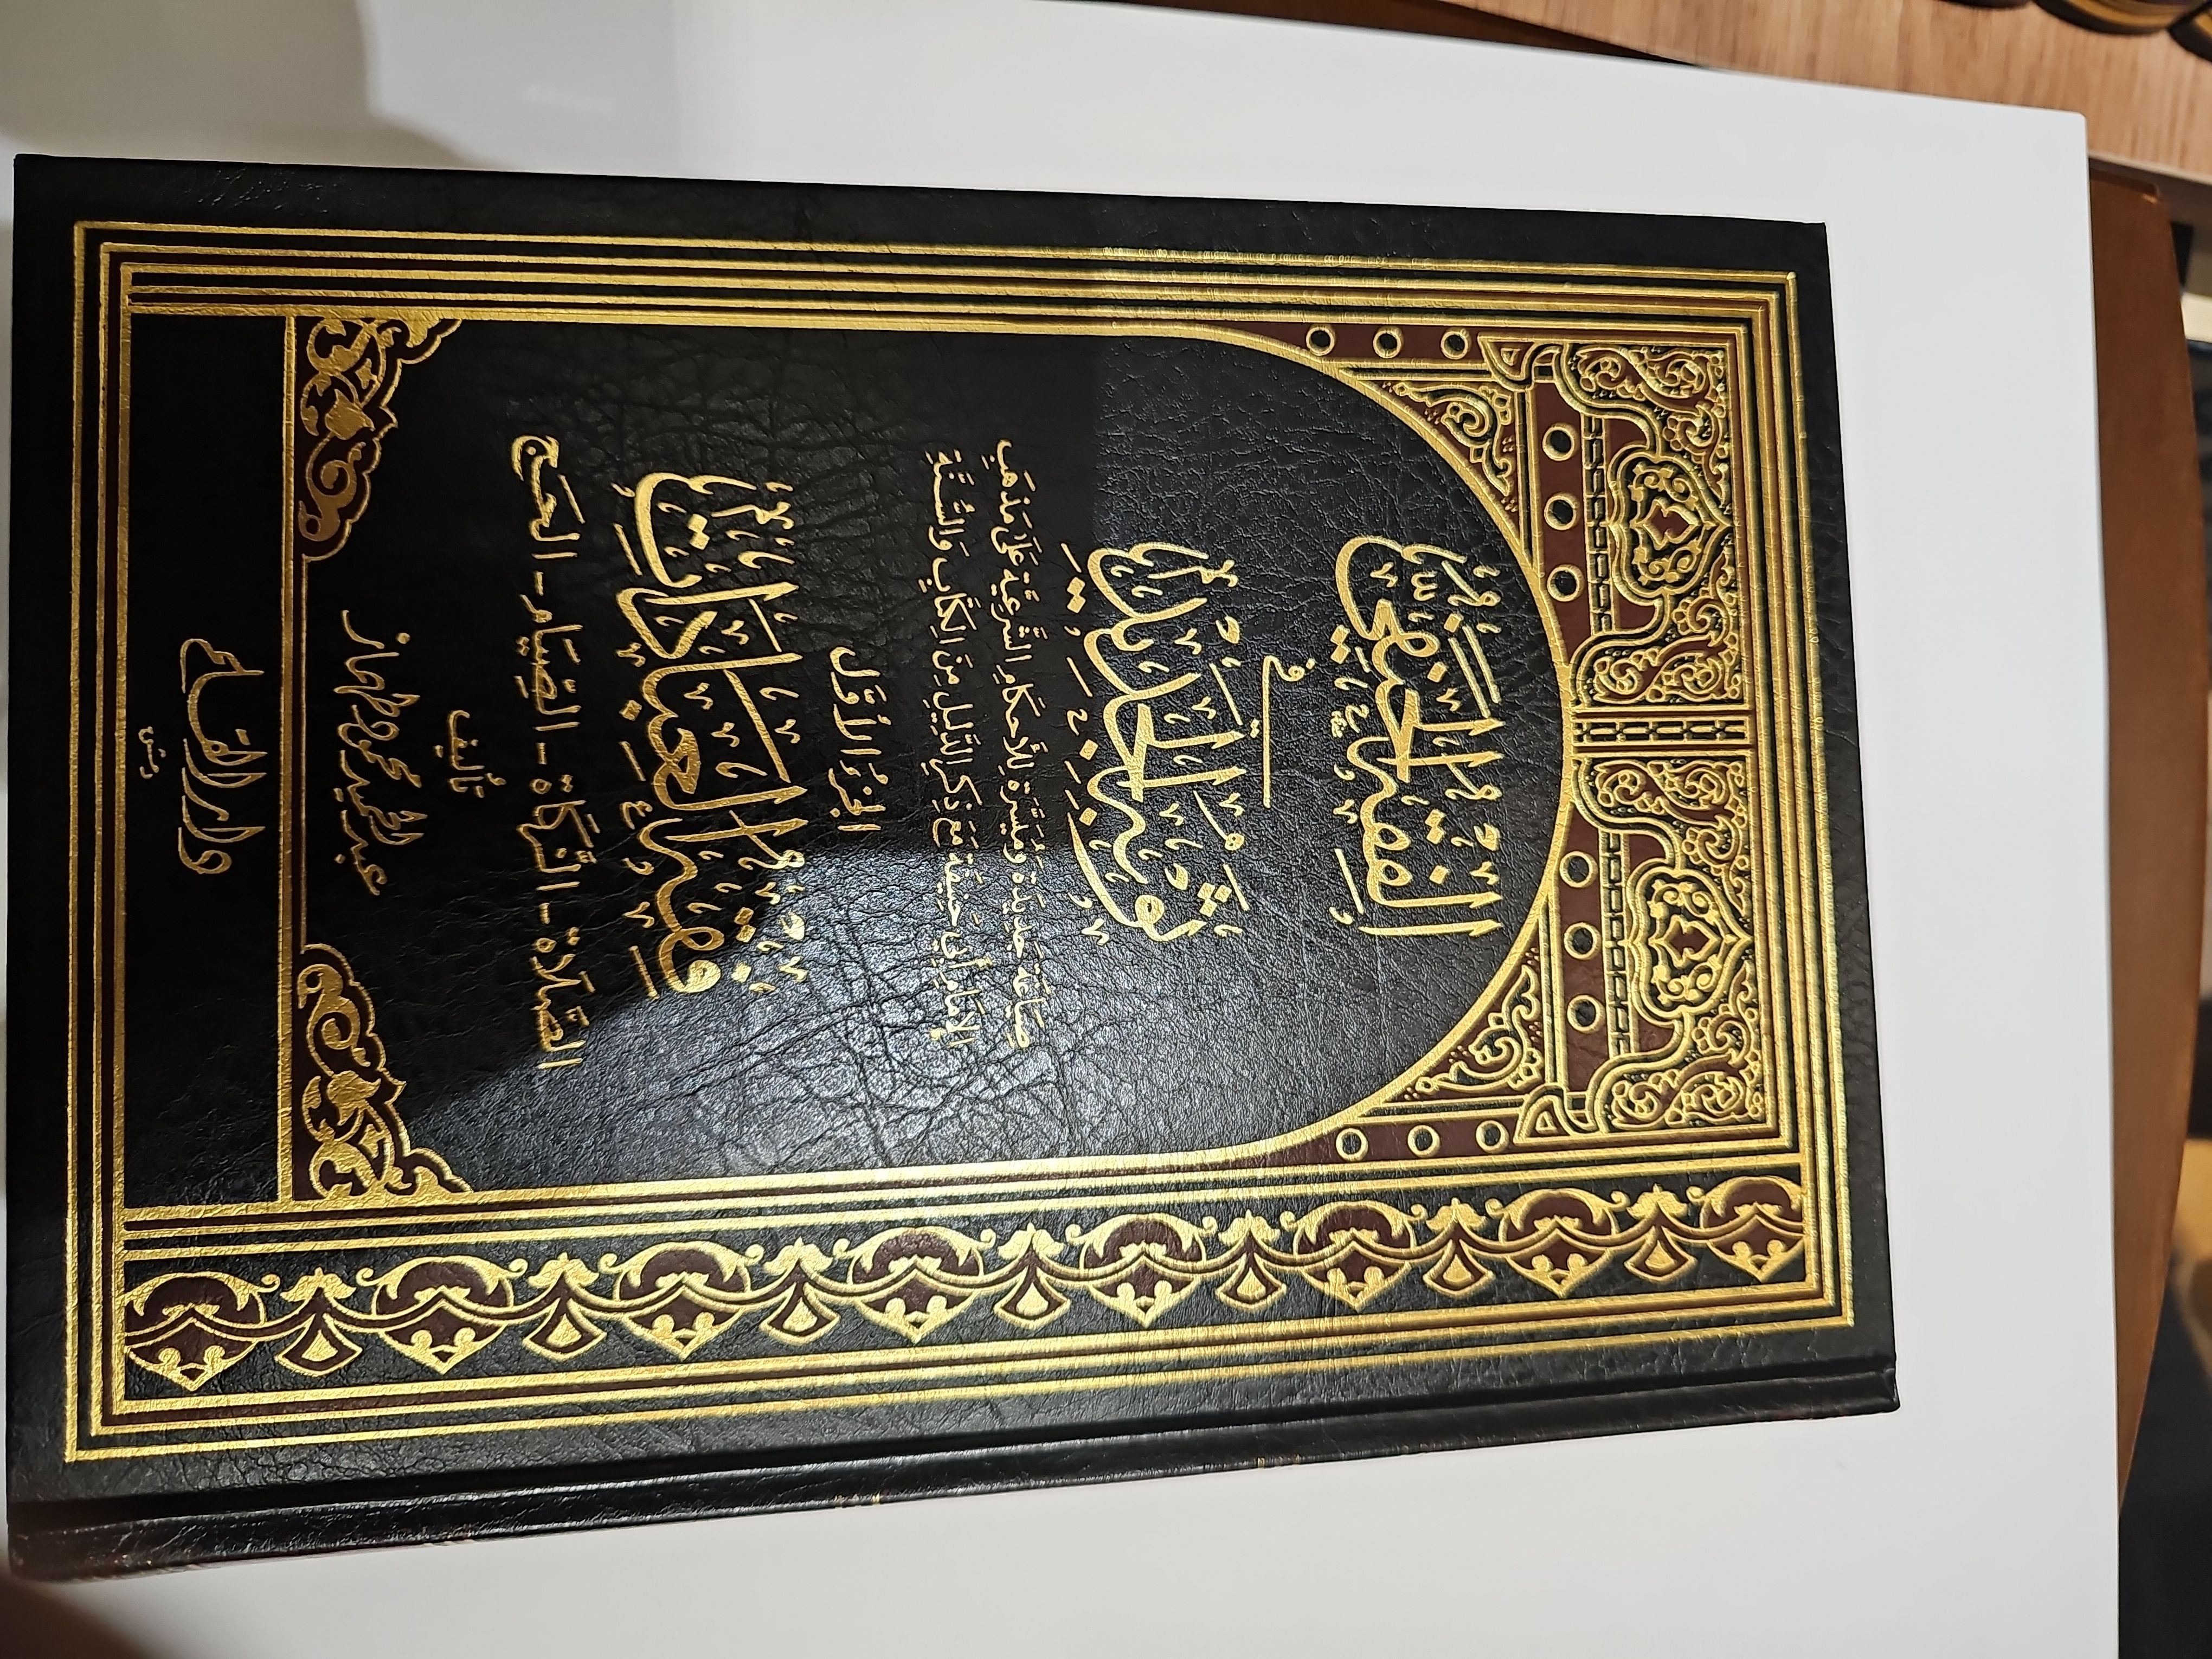 الفِقهُ الحَنَفِيُّ
في
ثَوبِهِ الجَدِيدِ
صِيَاغَةٌ جَدِيدَةٌ وَمُيَسَّرَةٌ لِلأَحكَامِ الشَّرعِيَّةِ عَلَىٰ مَذهَبِ
الإِمَامِ أَبِي حَنِيفَةَ مَعَ ذِكرِ الدَّلِيلِ مِنَ الكِتَابِ وَالسُّنَّةِ
الجُزءُ الأَوَّل
فِقهُ العِبَادَاتِ
الصَّلَاة - الزَّكَاة - الصِّيَام - الحَجّ
تأليف
عبد الحميد محمود طهماز
دار القلم
دمشق